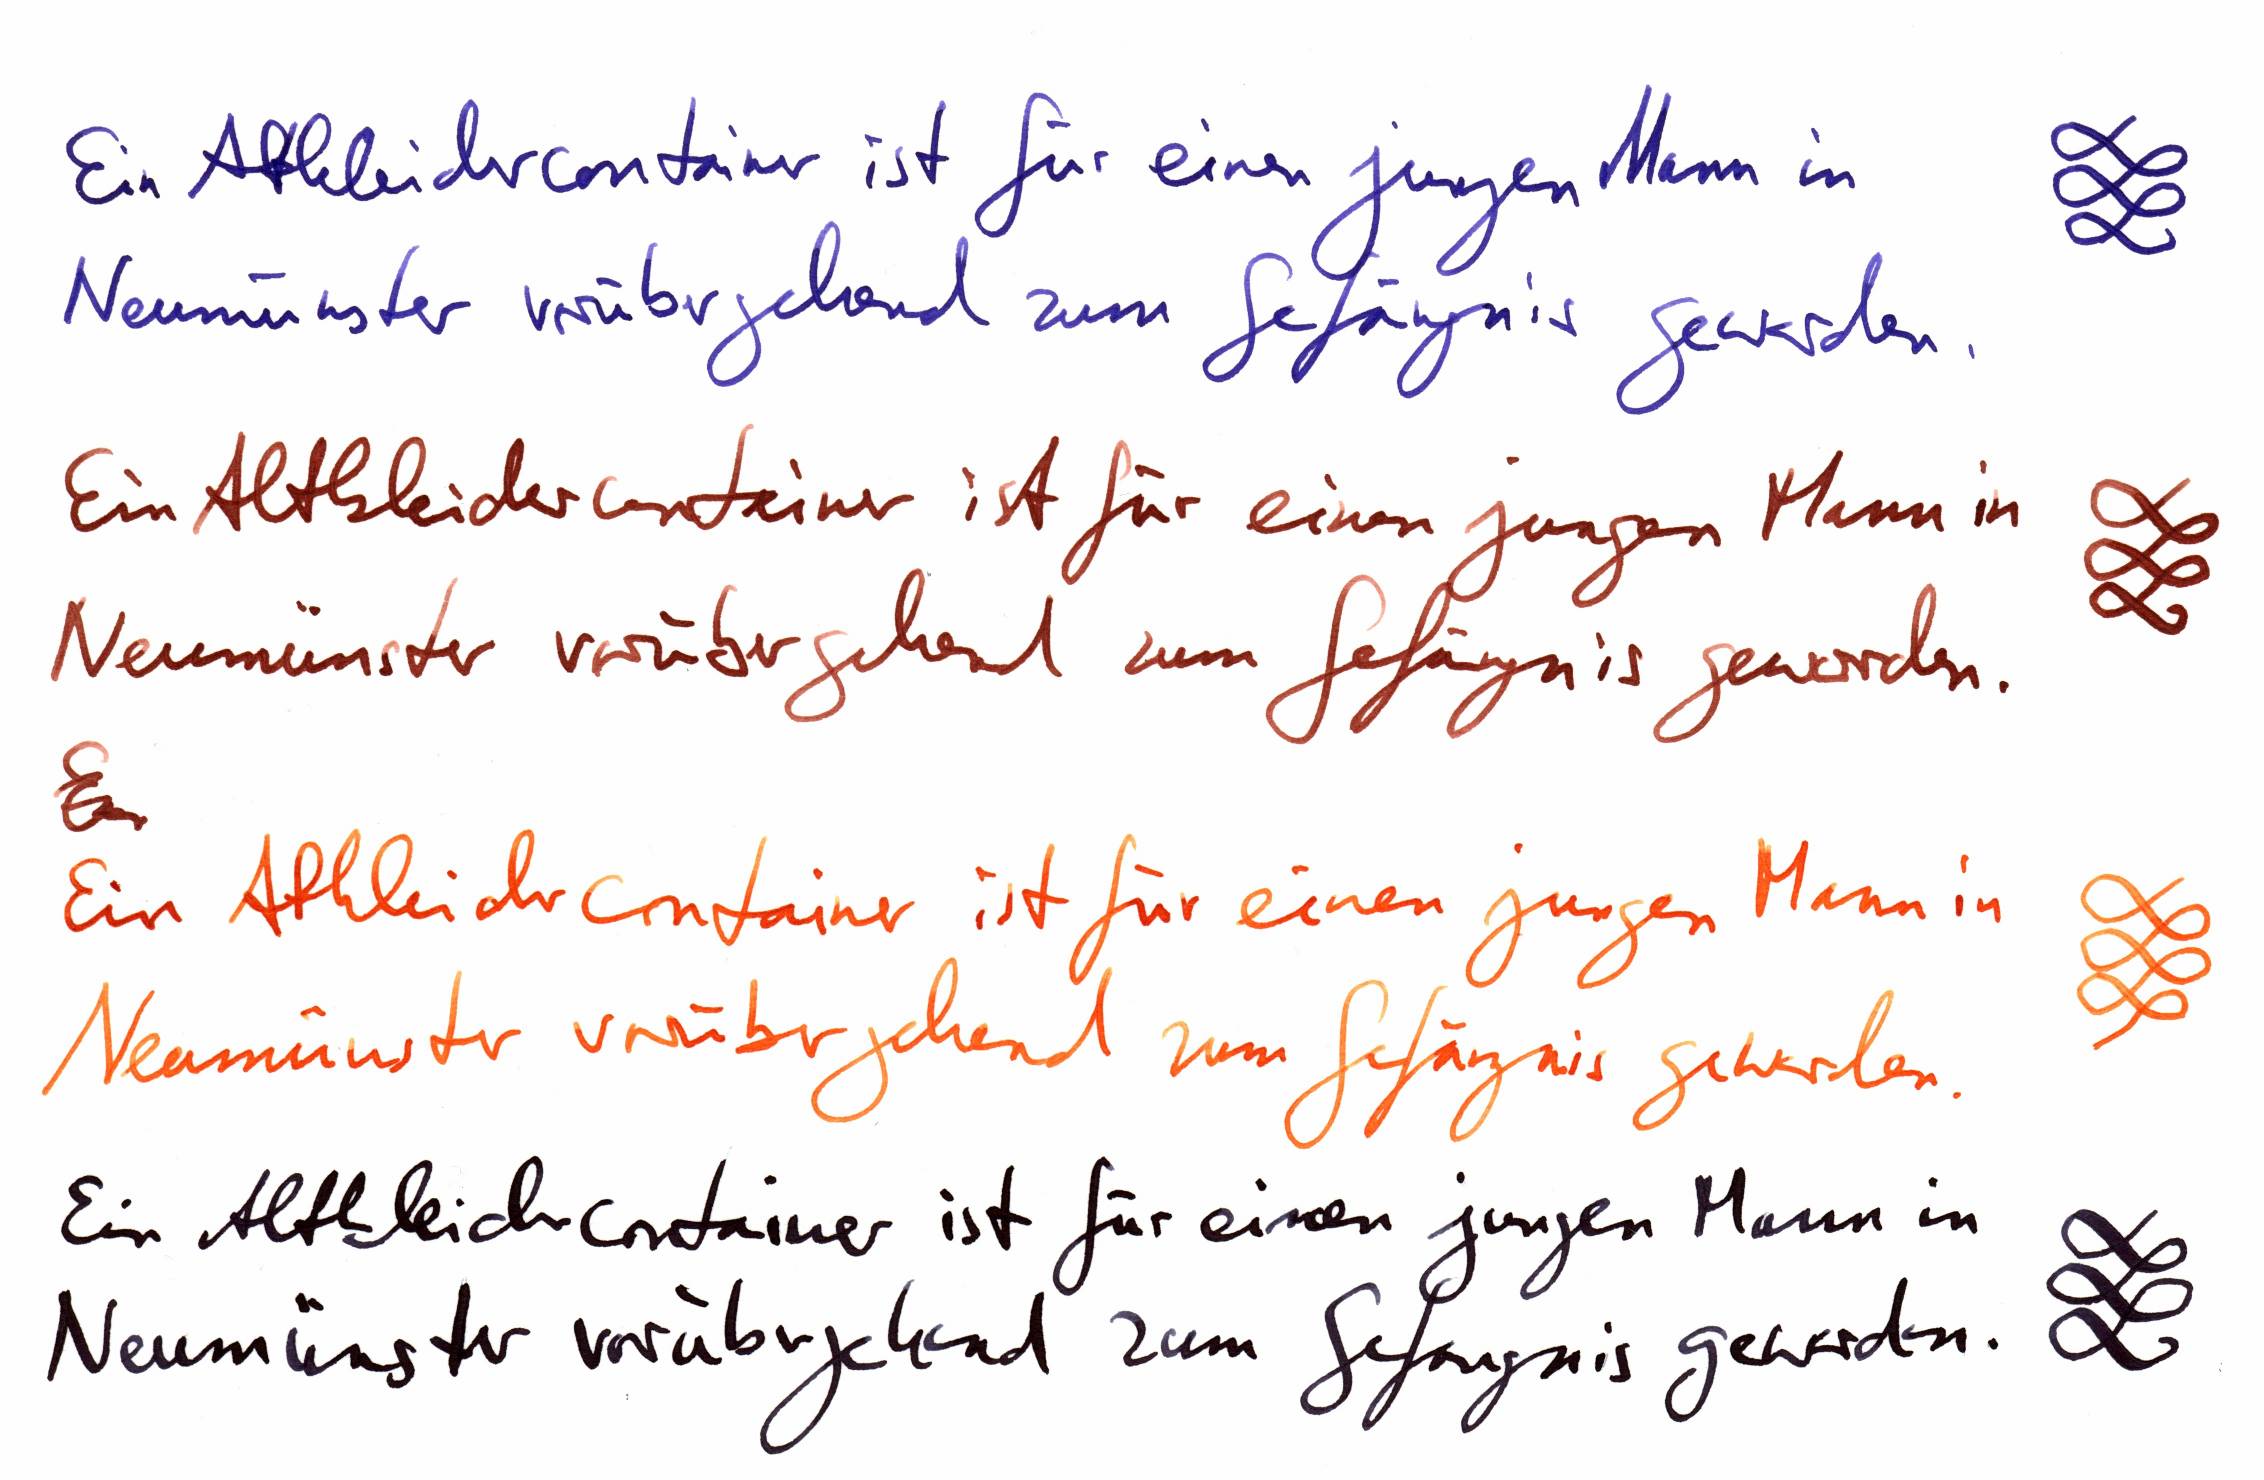 Ein Altkleidercontainer ist für einen jungen Mann in
Neumünster vorübergehend zum Gefängnis geworden.
Ein Altkleidercontainer ist für einen jungen Mann in
Neumünster vorübergehend zum Gefängnis geworden.
Ein Altkleidercontainer ist für einen jungen Mann in
Neumünster vorübergehend zum Gefängnis geworden.
Ein Altkleidercontainer ist für einen jungen Mann in
Neumünster vorübergehend zum Gefängnis geworden.